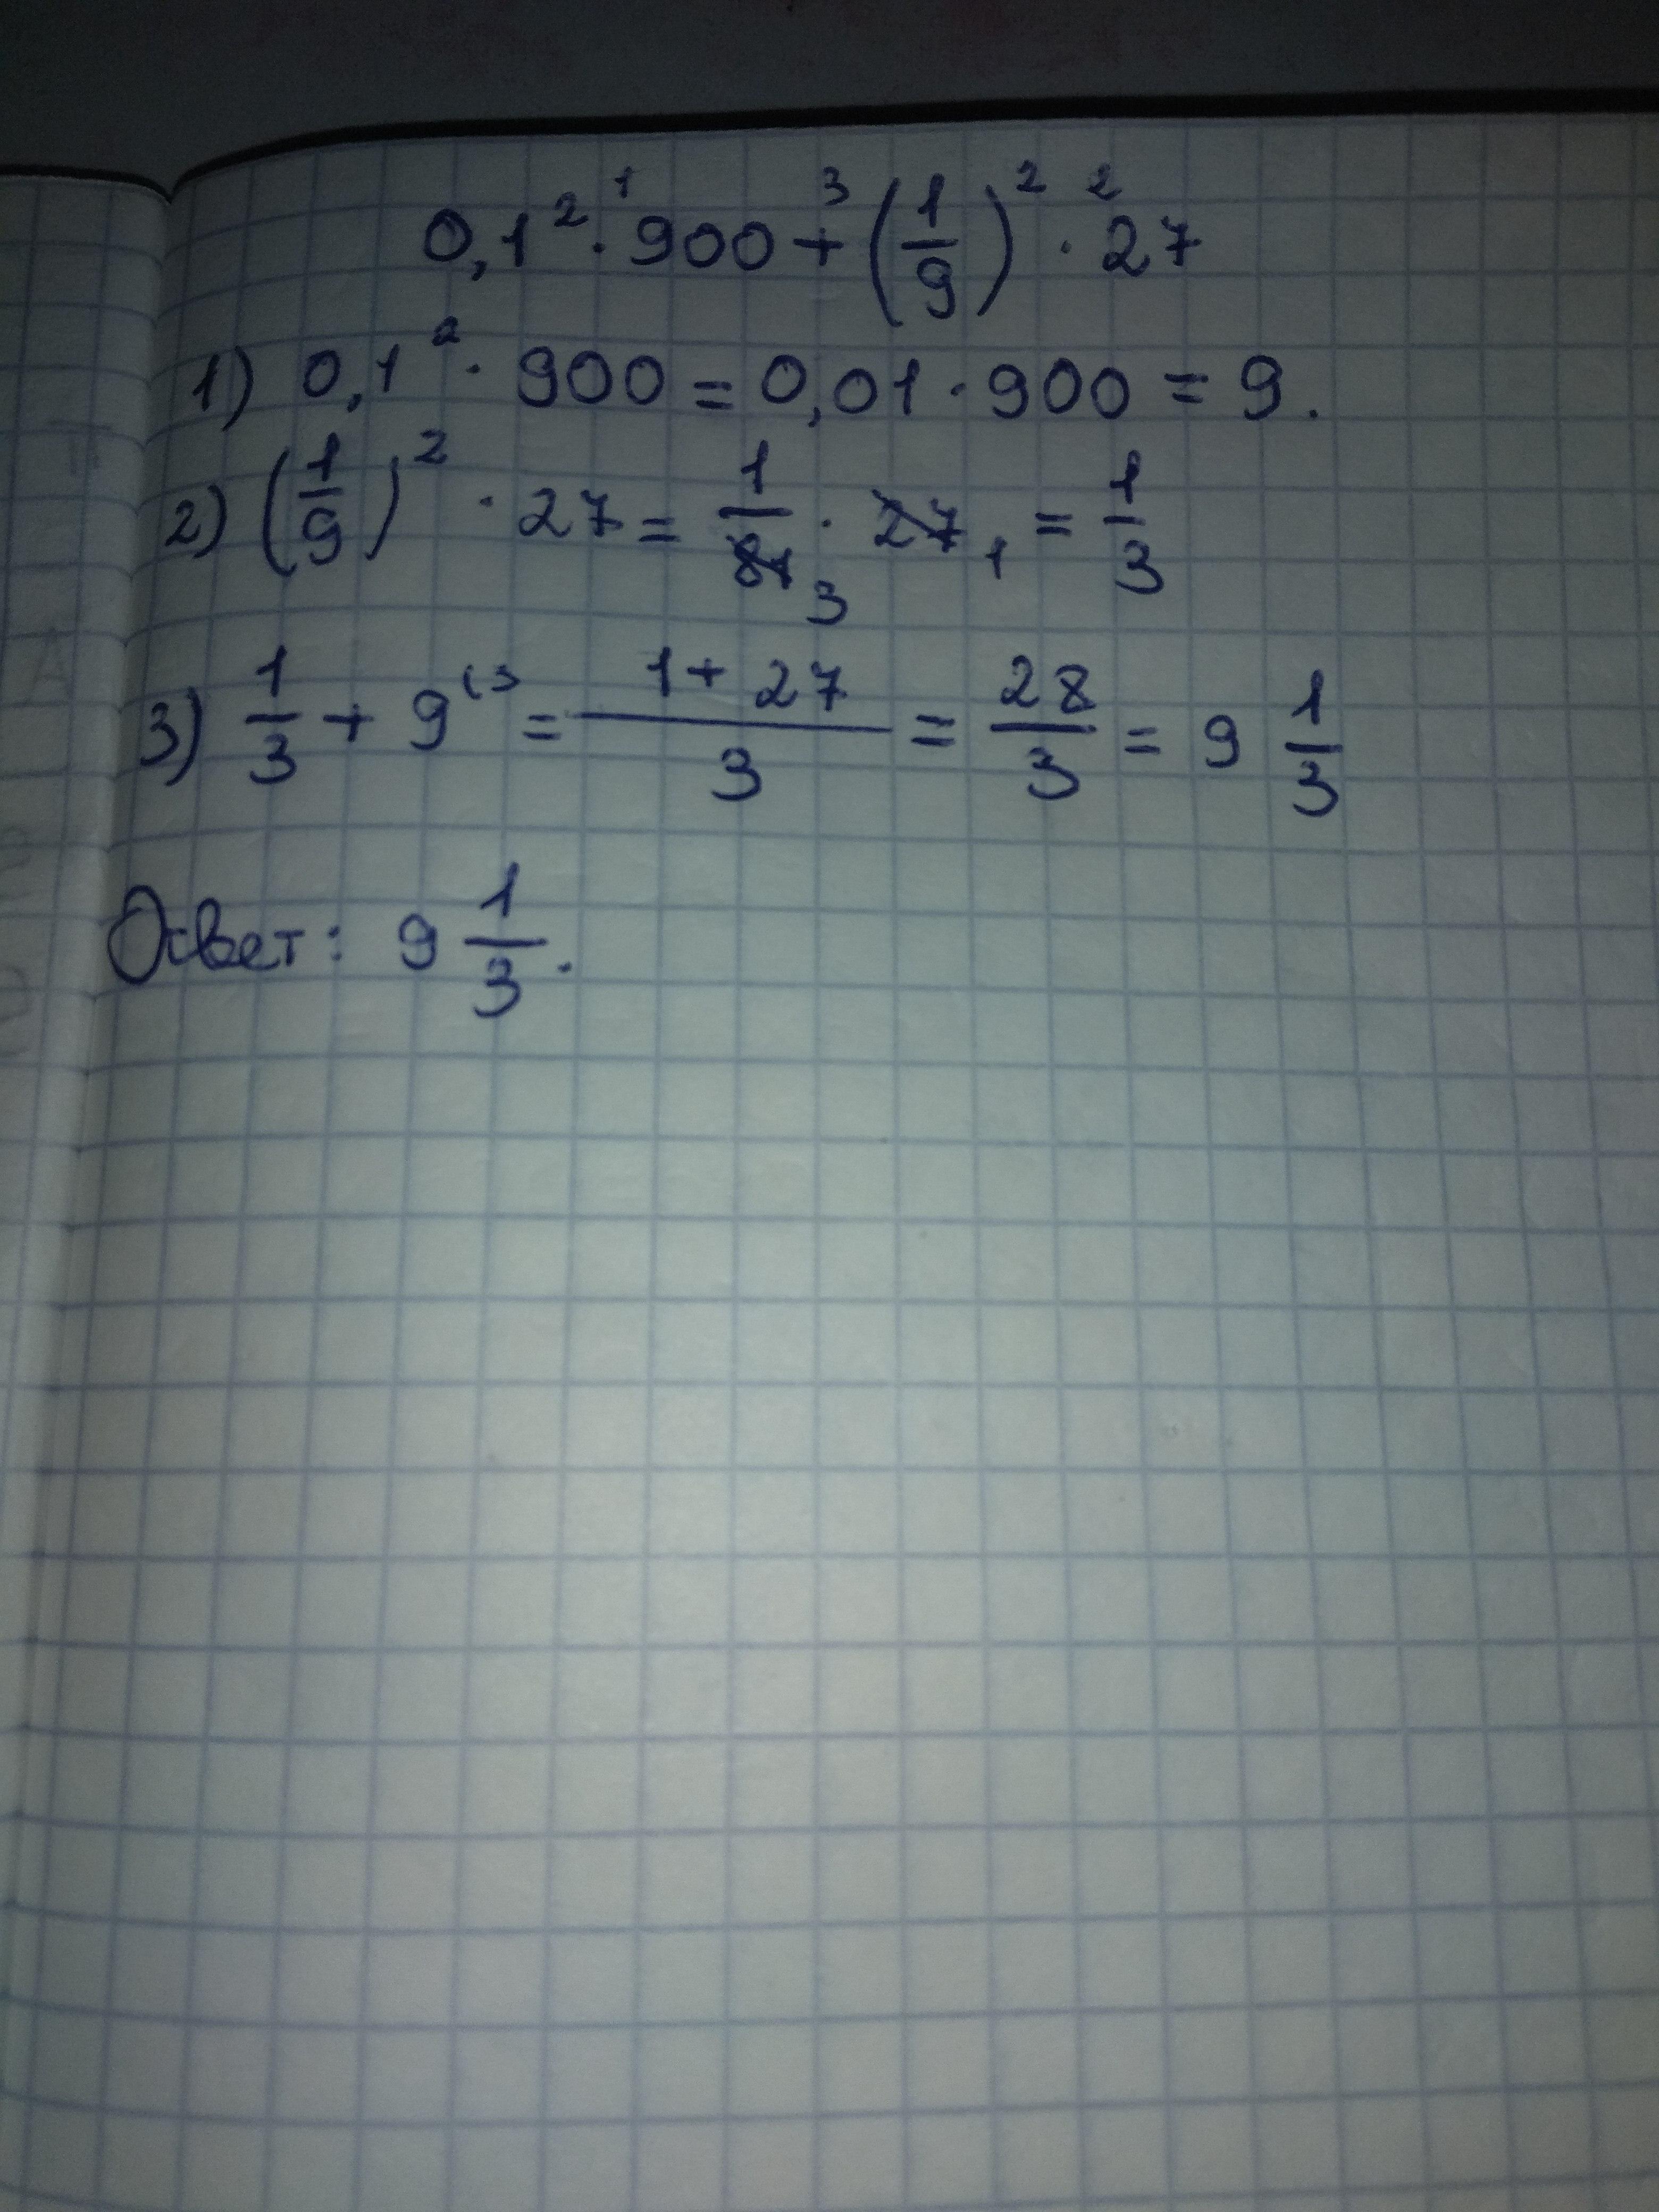 0,1² ·¹ 900 +³ (1/9)² ·² 27
1) 0,1² · 900 = 0,01 · 900 = 9.
2) (1/9)² · 27 = 1/81 3 · 27 1 = 1/3
3) 1/3 + 9 (3 = 1 + 27/3 = 28/3 = 9 1/3
Ответ: 9 1/3.